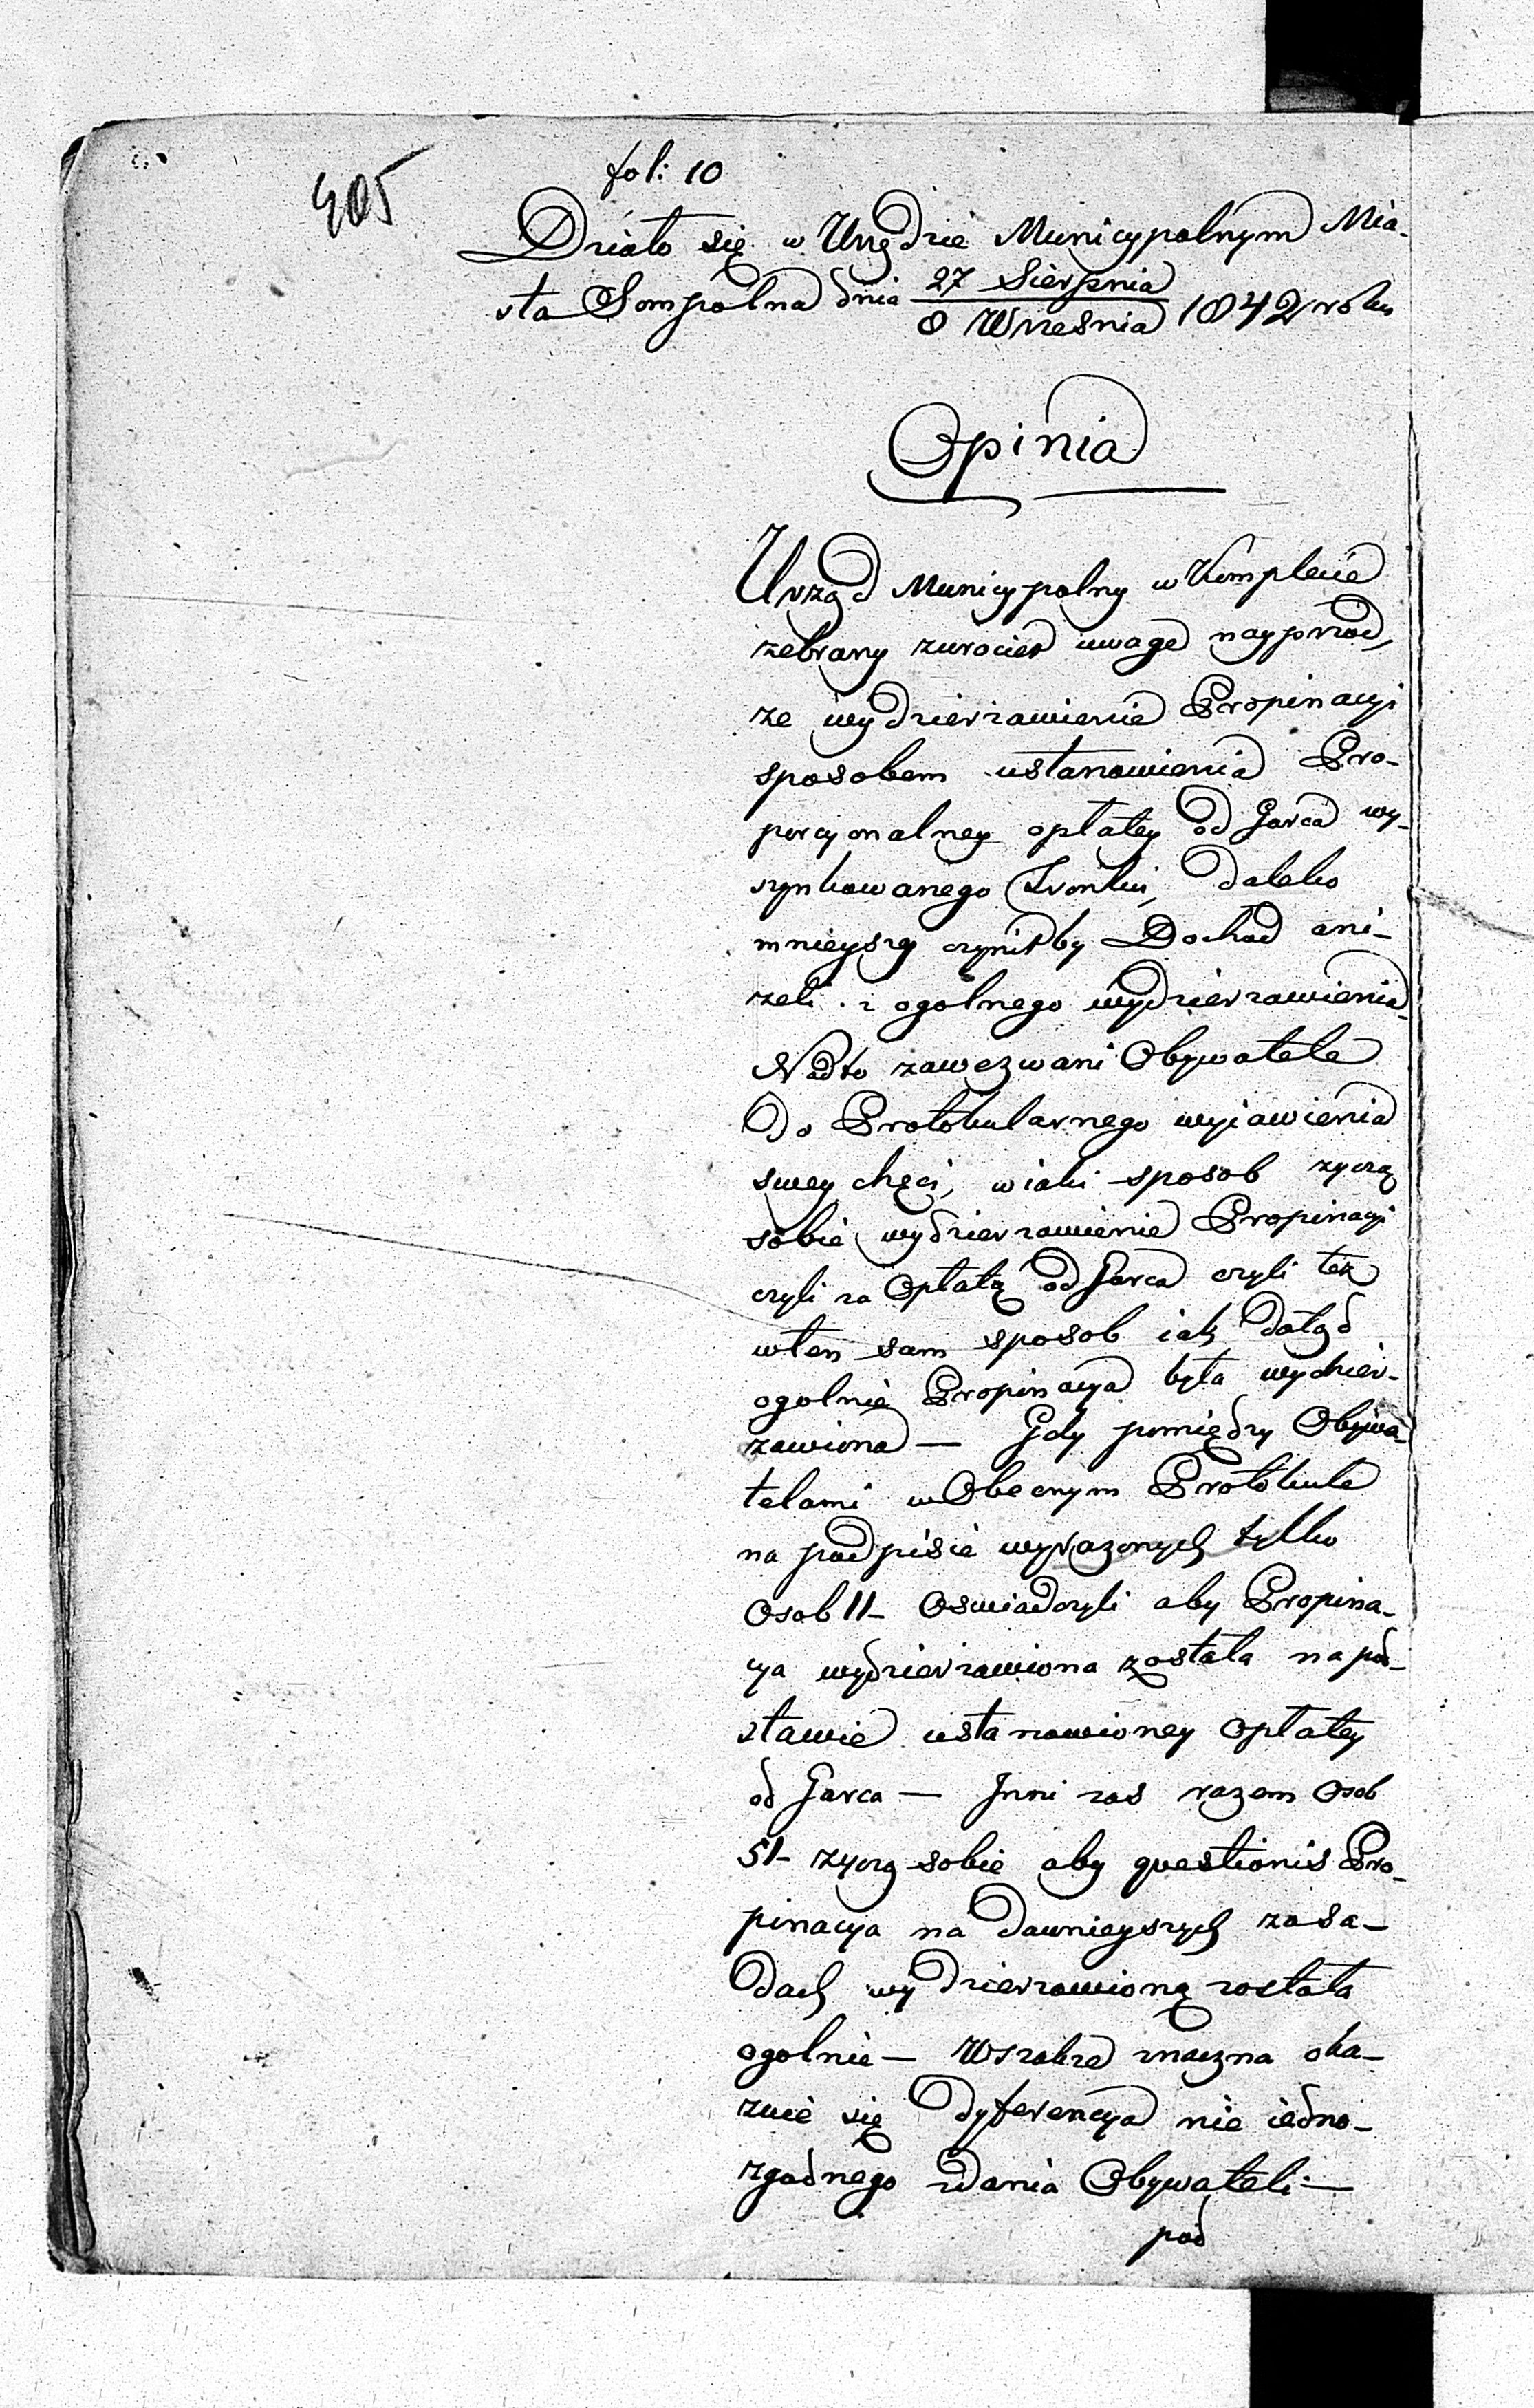 405
fol: 10
Działo się w Urzędzie Municypalnym Mia-
sta Sompolna dnia 27 Sierpnia / 8 Września 1842 roku
Opinia
Urząd Municypalny w Komplecie
zebrany zwrocieł uwage nayprzod,
ze wydzierzawienie Propinacyi
sposobem ustanowienia Pro-
porcyonalney opłatey od Garca wy-
szynkowanego Trunku, daleko
mnieyszy czynił by Dochod ani-
zeli z ogolnego wydzierzawienia
Nadto zawezwani Obywatele
do Protokularnego wyiawienia
swey chęci, w iaki sposob zyczą
sobie wydzierzawienie Propinacyi
czyli za Opłatą od Garca czyli też
w ten sam sposob iak dotąd
ogolnie Propinacya była wydzier-
zawiona — Gdy pomiędzy Obywa-
telami w Obecnym Protokule
na podpisie wyrazonych tylko
Osob 11- Oswiadczyli aby Propina-
cya wydzierzawiona została na pod-
stawie ustanowioney Opłatey
od Garca — Inni zas razem Osob
51- zyczą sobie aby questionis Pro-
pinacya na dawnieyszych zasa-
dach wydzierzawioną została
ogolnie — Wszakze znaczna oka-
zuie się dyferencya nie iedno-
zgodnego zdania Obywateli —
pod